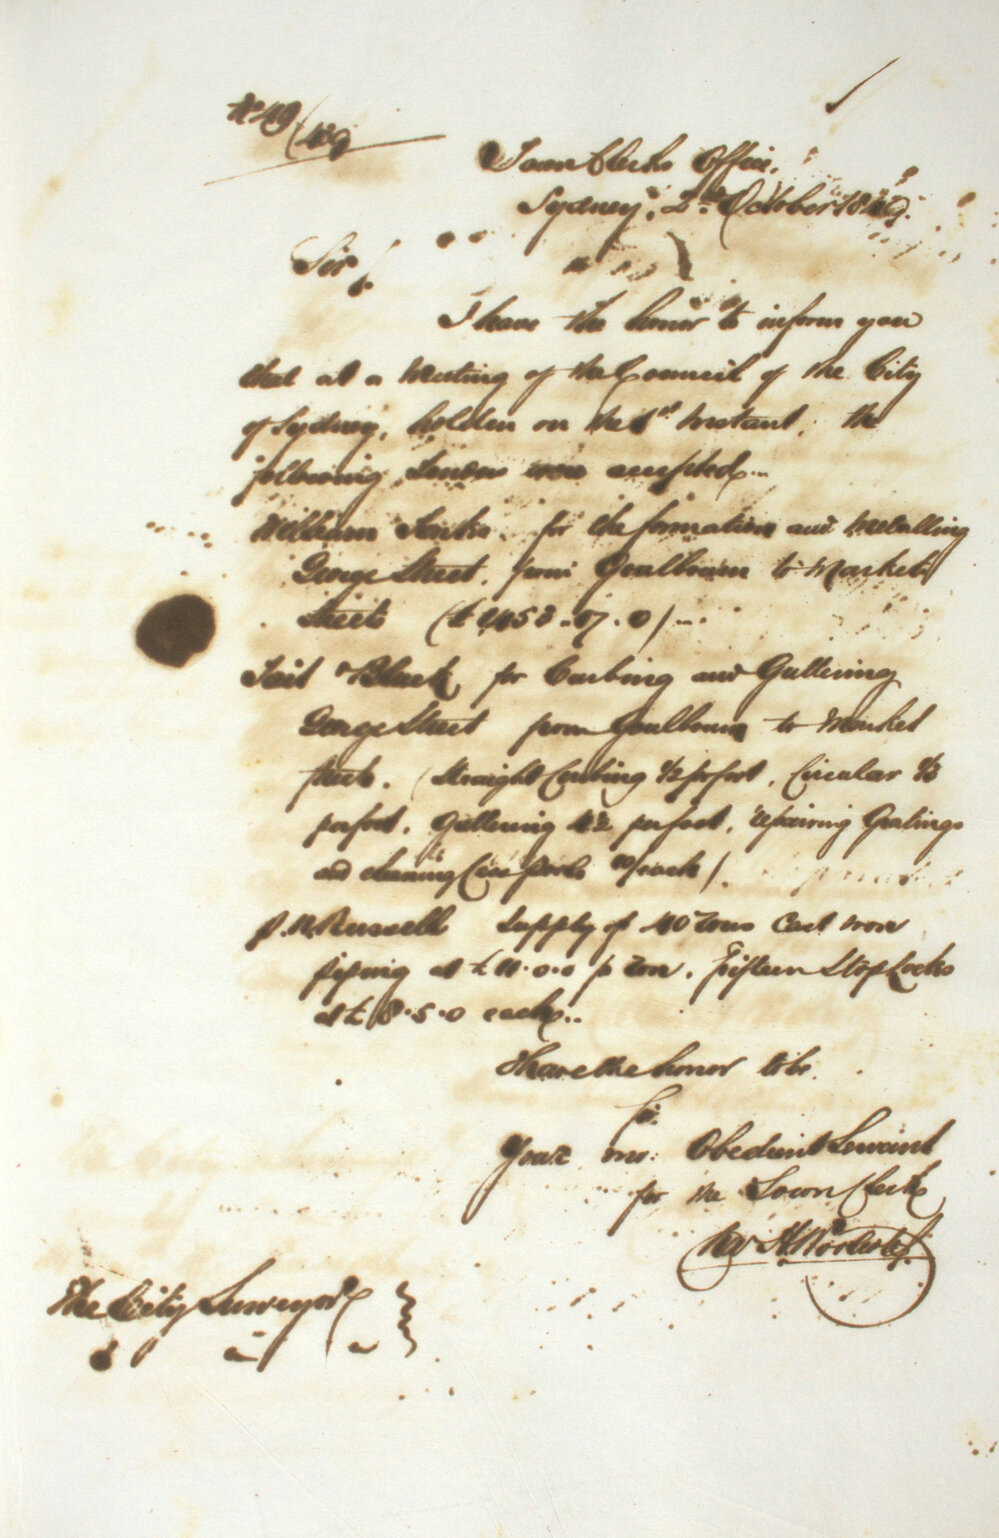 No 49/49
Town Clerks Office,
Sydney, 2nd October 1849.
Sir,
I have the honor to inform you
that at a Meeting of the Council of the City
of Sydney, holden on the 1st Instant, the
following Tenders were accepted...
William for the formation and Metalling
George Street, from Goulbourn to Market
Streets
Tait & Black, for Curbing and Guttering
George Street from Goulbourn to Market
Streets. (Straight Curbing 1/2 pr foot, Circular
per foot, Guttering per foot, repairing Gratings
and cleaning Cess pools each).
J. N. Russell Supply of 40 Tons Cast iron
piping at £11.0.0 p Ton. fifteen Stop Cocks
at £8.5.0 each..
I have the honor to be.
Sir.
Your mo: Obedient Servant
for the Town Clerk
The City Surveyor